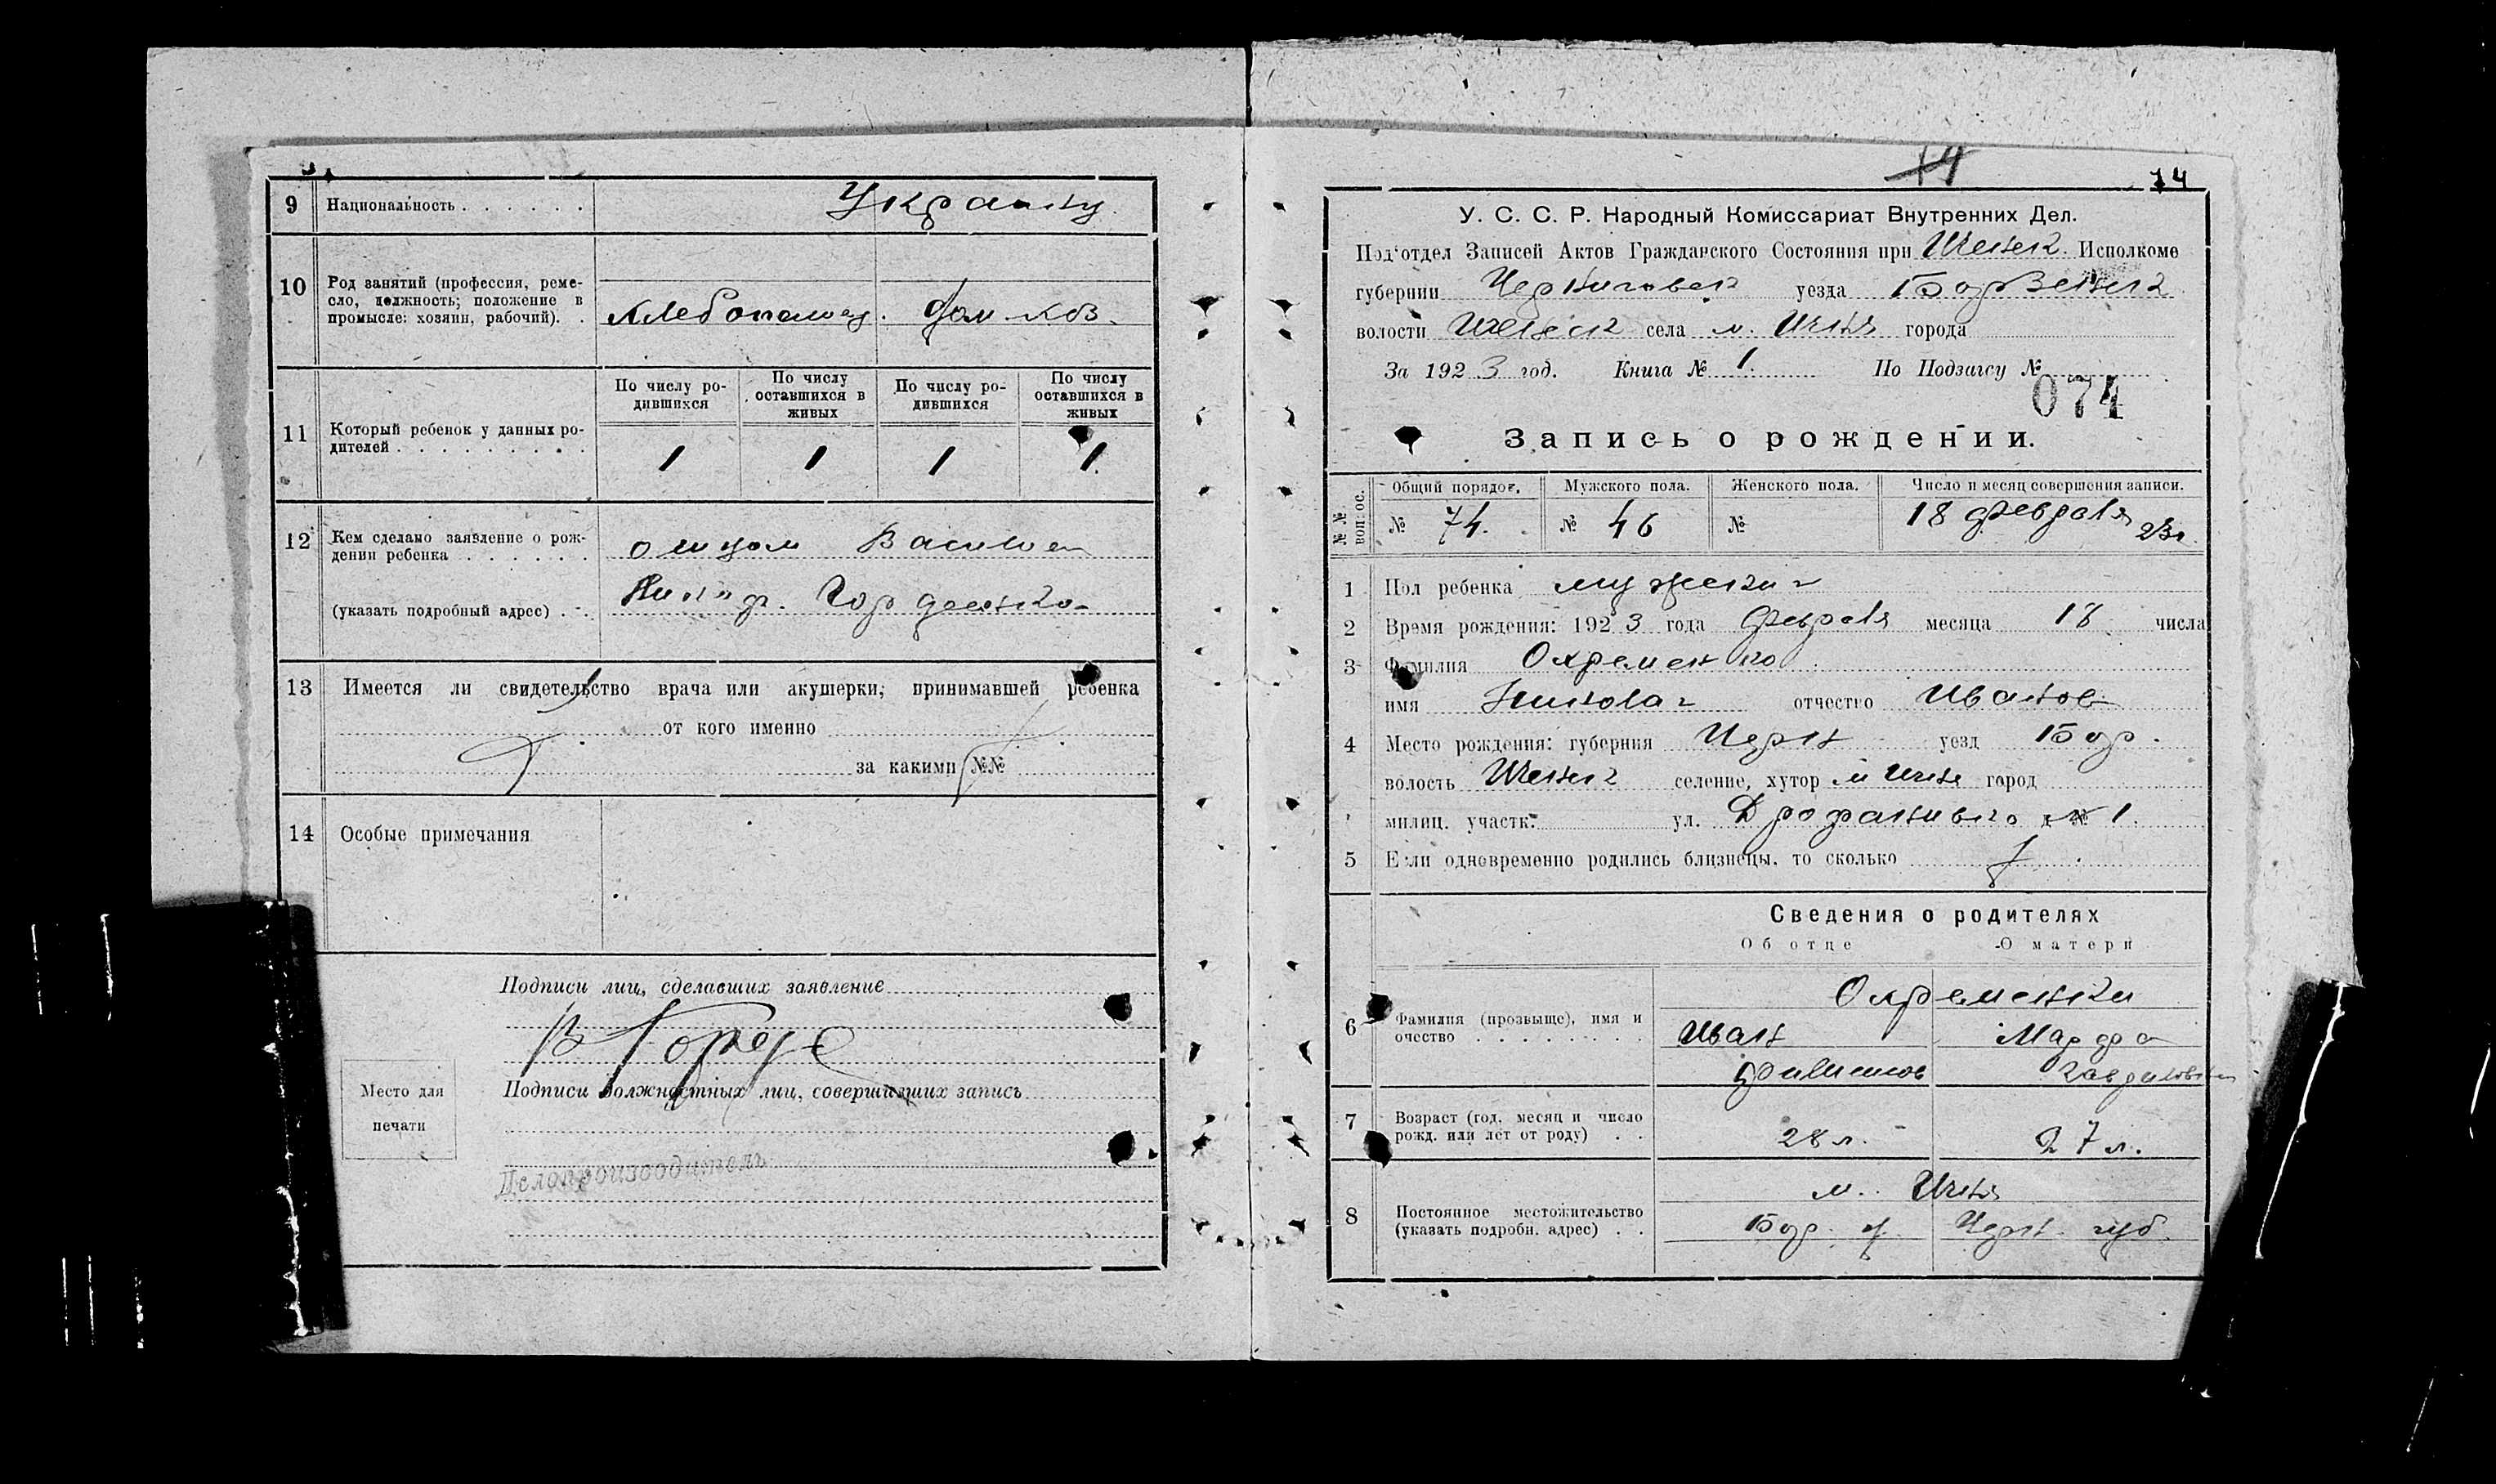 9 Национальность . . . . . . Украинц.
10 Род занятий (профессия, реме-
сло, должность; положение в
промысле: хозяин, рабочий). .
Хлебопашец. Дом. хоз.
11 Который ребенок у данных ро-
дителей . . . . . . . . . .
По числу ро-
дившихся
По числу
оставшихся в
живых
По числу ро-
дившихся
По числу
оставшихся в
живых
1 1 1 1
12 Кем сделано заявление о рож-
дении ребенка . . . . . .
(указать подробный адрес) . .
Васильем
Гордеенко
13 Имеется ли свидетельство врача или акушерки, принимавшей ребенка
от кого именно
за какими №№
14 Особые примечания
Подписи лиц, сделавших заявление
В Горде
Подписи должностных лиц, совершивших запись
Место для
печати
Делопроизводитель
74
74
У. С. С. Р. Народный Комиссариат Внутренних Дел.
Под'отдел Записей Актов Гражданского Состояния при Ичнянск. Исполкоме
губернии Черниговск уезда Борзенск
волости Ичнянск села м. Ичня города
За 1923 год. Книга № 1. По Подзагсу №
074
Запись о рождении.
№№ вопрос.
Общий порядок. Мужского пола. Женского пола. Число и месяц совершения записи.
№ 74. № 46 № 18 февраля 23г.
1 Пол ребенка мужский
2 Время рождения: 1923 года февраля месяца 18 числа
3 Фамилия Охременко
имя Николай отчество Иванов
4 Место рождения: губерния Черн уезд Бор.
волость Ичнянск селение, хутор м Ичня город
милиц. участк. ул. д № 1.
5 Если одновременно родились близнецы, то сколько
Сведения о родителях
Об отце О матери
6 Фамилия (прозвище), имя и
очество . . . . . . . . .
Охременки
Иван Марфа
Филипов Гавриловна
7 Возраст (год, месяц и число
рожд. или лет от роду) . .
28 л. 27 л.
8 Постоянное местожительство
(указать подробн. адрес) . .
м. Ичня
Бор. у. Черн. губ.